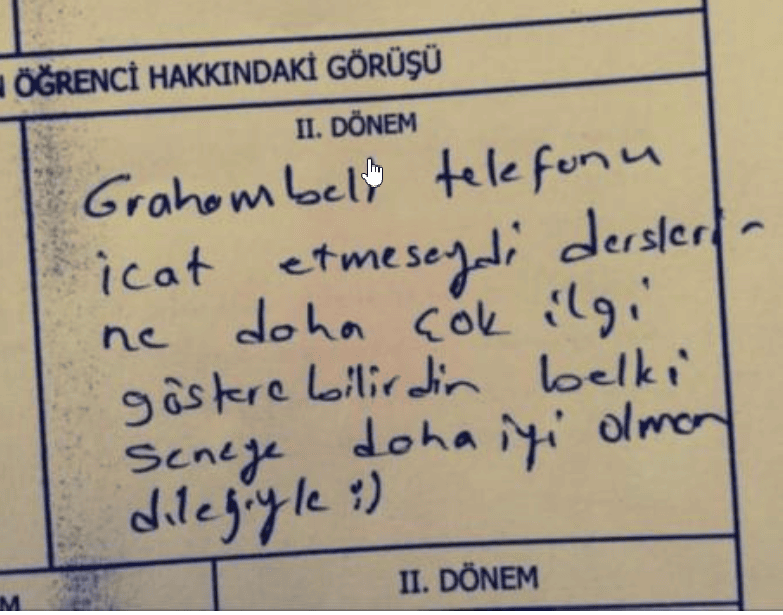 ÖĞRENCİ HAKKINDAKİ GÖRÜŞÜ
II. DÖNEM
Grahambell telefonu
icat etmeseydi dersleri-
ne daha çok ilgi
gösterebilirdin belki
seneye daha iyi olman
dileğiyle :)
II. DÖNEM